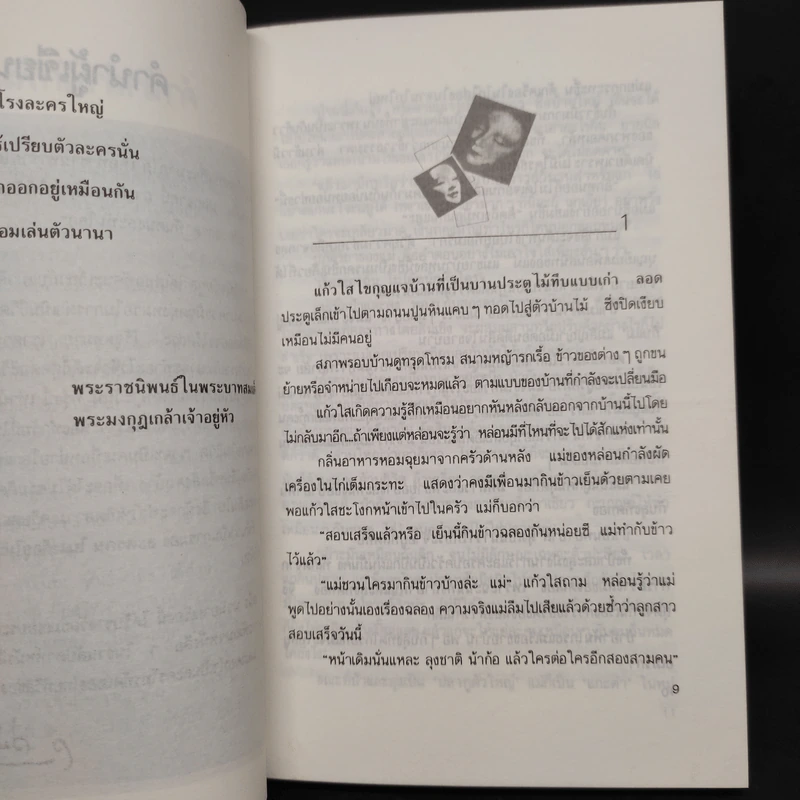 โรงละครใหญ่
เปรียบตัวละครนั่น
ออกอยู่เหมือนกัน
อมเล่นตัวนานา
พระราชนิพนธ์ในพระบาทสมเ
พระมงกุฎเกล้าเจ้าอยู่หัว
1
แก้วใสไขกุญแจบ้านที่เป็นบานประตูไม้ทึบแบบเก่า ลอด
ประตูเล็กเข้าไปตามถนนปูนหินแคบ ๆ ทอดไปสู่ตัวบ้านไม้ ซึ่งปิดเงียบ
เหมือนไม่มีคนอยู่
สภาพรอบบ้านดูทรุดโทรม สนามหญ้ารกเรื้อ ข้าวของต่าง ๆ ถูกขน
ย้ายหรือจำหน่ายไปเกือบจะหมดแล้ว ตามแบบของบ้านที่กำลังจะเปลี่ยนมือ
แก้วใสเกิดความรู้สึกเหมือนอยากหันหลังกลับออกจากบ้านนี้ไปโดย
ไม่กลับมาอีก...ถ้าเพียงแต่หล่อนจะรู้ว่า หล่อนมีที่ไหนที่จะไปได้สักแห่งเท่านั้น
กลิ่นอาหารหอมฉุยมาจากครัวด้านหลัง แม่ของหล่อนกำลังผัด
เครื่องในไก่เต็มกระทะ แสดงว่าคงมีเพื่อนมากินข้าวเย็นด้วยตามเคย
พอแก้วใสชะโงกหน้าเข้าไปในครัว แม่ก็บอกว่า
“สอบเสร็จแล้วหรือ เย็นนี้กินข้าวฉลองกันหน่อยซี แม่ทำกับข้าว
ไว้แล้ว”
“แม่ชวนใครมากินข้าวบ้างล่ะ แม่” แก้วใสถาม หล่อนรู้ว่าแม่
พูดไปอย่างนั้นเองเรื่องฉลอง ความจริงแม่ลืมไปเสียแล้วด้วยซ้ำว่าลูกสาว
สอบเสร็จวันนี้
“หน้าเดิมนั่นแหละ ลุงชาติ น้าก้อ แล้วใครต่อใครอีกสองสามคน”
9